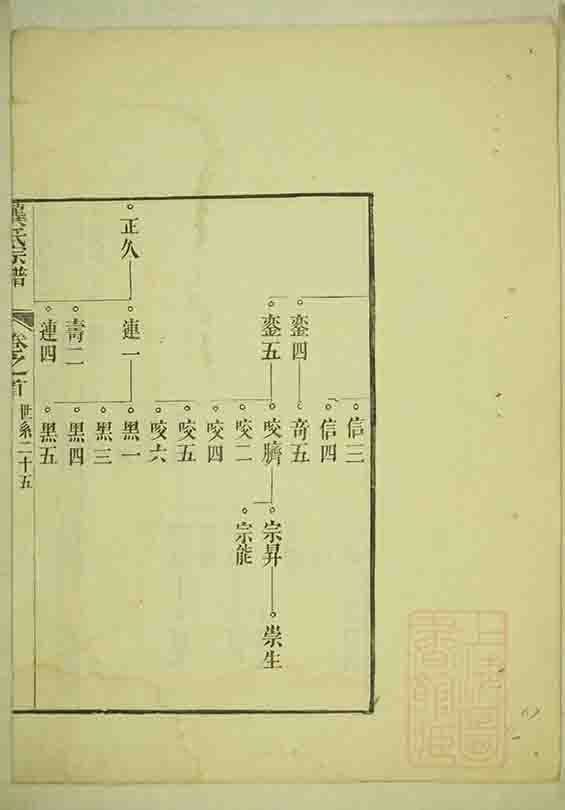 信三
信四
銮四
竒五
銮五
咬臍
宗昇
崇生
咬二
宗能
咬四
咬五
咬六
正久
連一
黑一
黑三
青二
黑四
連四
黑五
氏宗譜
卷之首
世系二十五
上海圖書館藏